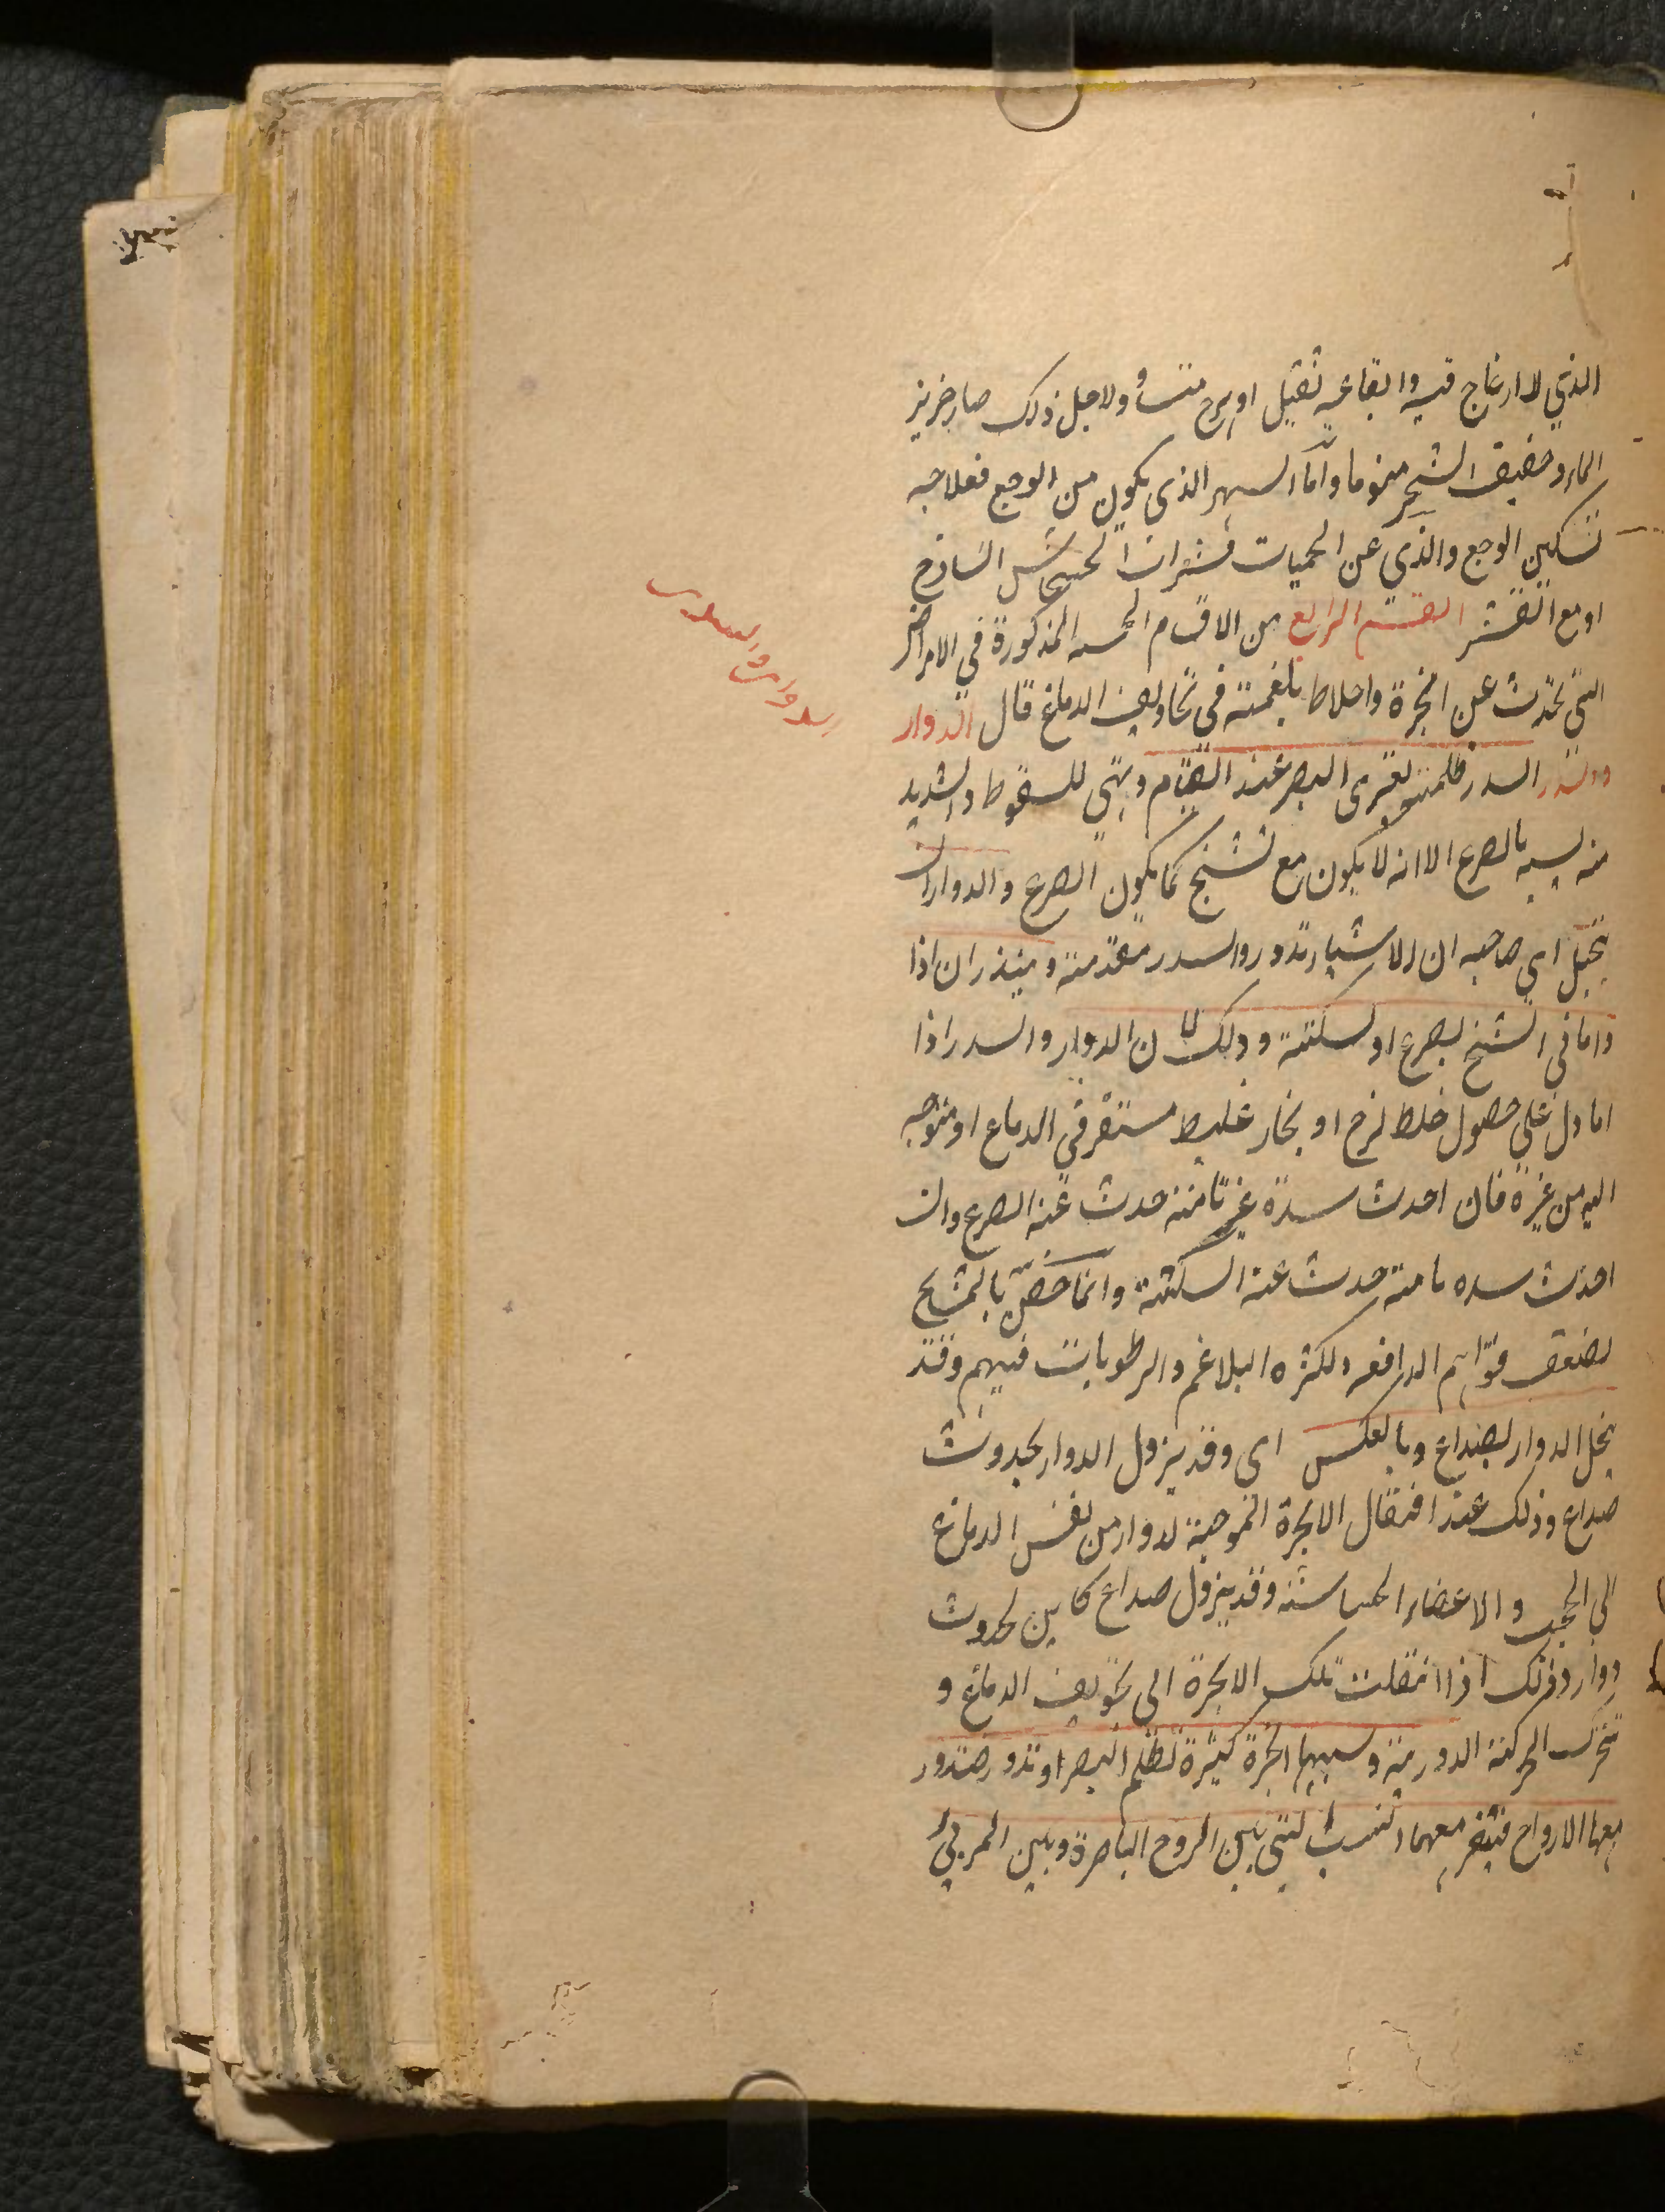 الذي لا ارعاج فيه وايقاعه ثقيل او هزج متساو ولاجل ذلك صار خرير
الماء وحفيف الشجر منوما واما السهر الذي يكون من الوجع فعلاجه
تسكين الوجع والذي عن الحميات فشراب الخشخاش الساذج
او مع القشر القسم الرابع من الاقسام الخمسه المذكورة في الامراض
التي تحدث عن ابخرة واخلاط بلغمية في تجاويف الدماغ قال الدوار
والسدر السدر ظلمة تعتري البصر عند القيام وتهيئ للسقوط والشديد
منه يشبه بالصرع الا انه لا يكون مع تشنج كما يكون الصرع والدوار ان
يخيل اي صاحبه ان الاشياء تدور والسدر مقدمته ومينذران اذا
داما في المشايخ بصرع او سكتة وذلك لان الدوار والسدر اذا
داما دل على حصول خلط لزج او بخار غليظ مستقر في الدماغ او متوجه
اليه من غيره فان احدث سدة غير تامة حدث عنه الصرع وان
احدث سده تامة حدث عنه السكتة وانما خص بالمشايخ
لضعف قواهم الدافعه ولكثره البلاغم والرطوبات فيهم وقد
ينحل الدوار بصداع وبالعكس اي وقد يزول الدوار بحدوث
صداع وذلك عند انتقال الابخرة الموجبة لدوار من نفس الدماغ
الى الحجب والاعضاء الحساسة وقد يزول صداع كاين لحدوث
دوار وذلك اذا انتقلت تلك الابخرة الى تجويف الدماغ و
تحركت الحركة الدورية وسببهما ابخرة كثيرة تظلم البصر او تدور فتدور
معها الارواح فيتغير معهما النسب التي بين الروح الباصرة وبين المرئي